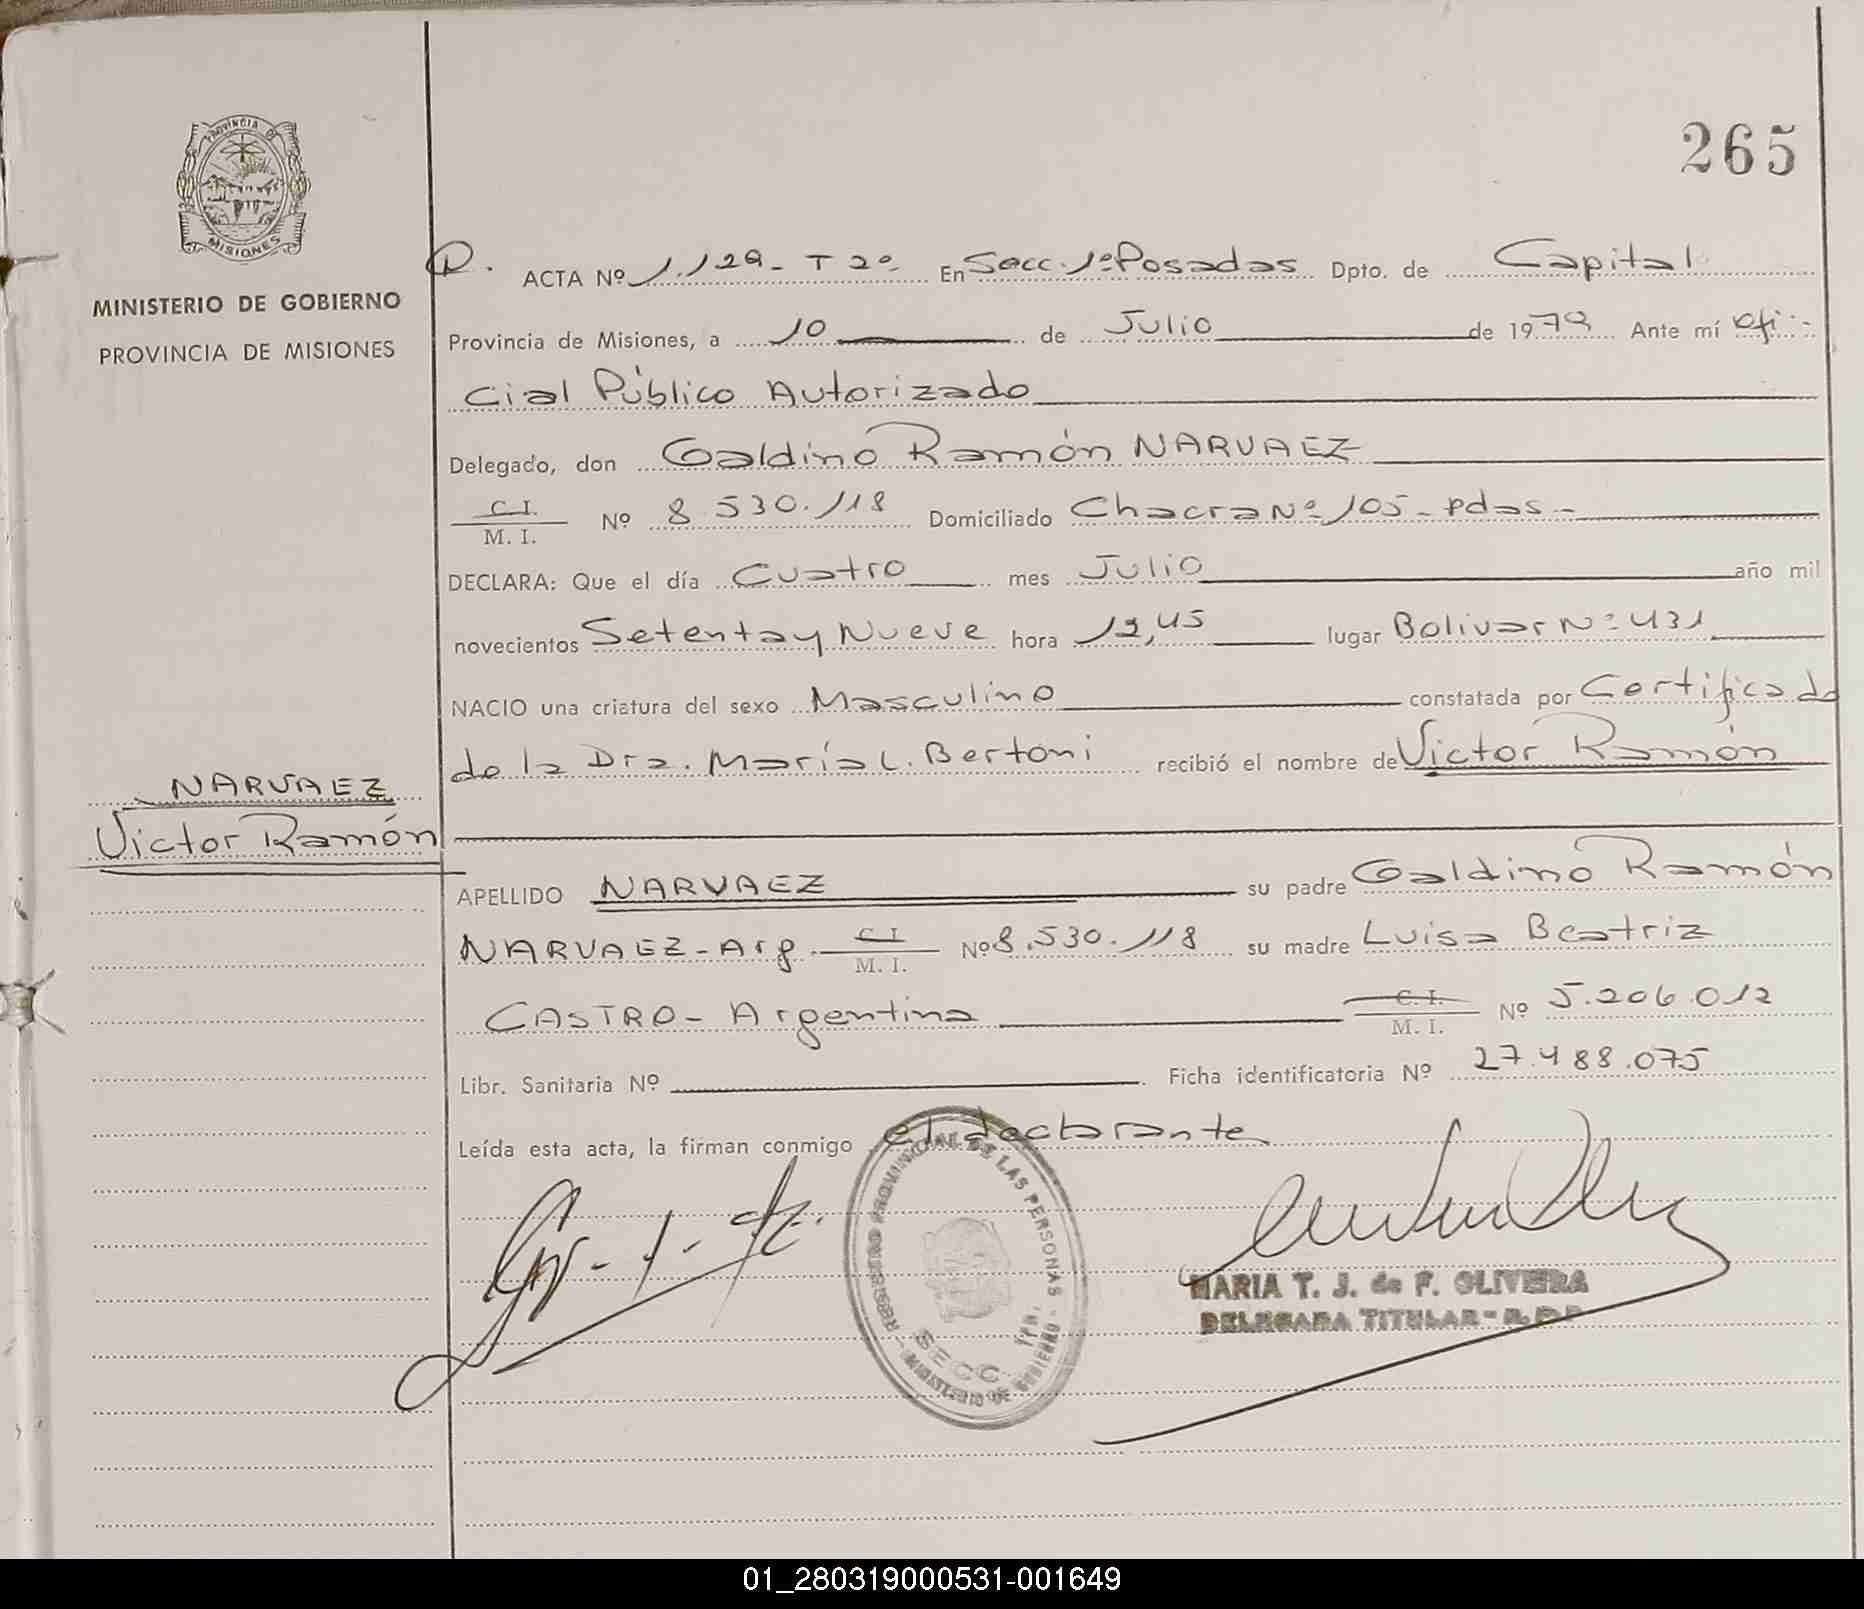 265
PROVINCIA DE
MISIONES
MINISTERIO DE GOBIERNO
PROVINCIA DE MISIONES
ACTA Nº 1.129- T 2º- En Secc. 1º Posadas Dpto. de Capital
Provincia de Misiones, a 10 de Julio de 1979 Ante mí Ofi-
cial Público Autorizado
Delegado, don Galdino Ramón NARVAEZ
C.I.
M. I. Nº 8.530.118 Domiciliado Chacra Nº 105- Pdas-
DECLARA: Que el día Cuatro mes Julio año mil
novecientos Setenta y Nueve hora 12,45 lugar Bolivar Nº 431
NACIO una criatura del sexo Masculino constatada por Certificado
de la Dra. María L. Bertoni recibió el nombre de Victor Ramón
NARVAEZ
Victor Ramón
APELLIDO NARVAEZ su padre Galdino Ramón
NARVAEZ- Arg. C.I. M. I. Nº 8.530.118 su madre Luisa Beatriz
CASTRO- Argentina C. I. M. I. Nº 5.206.012
Libr. Sanitaria Nº Ficha identificatoria Nº 27.488.075
Leída esta acta, la firman conmigo el declarante
REGISTRO PROVINCIAL DE LAS PERSONAS - MINISTERIO DE GOBIERNO
SECC.
MARIA T. J. de F. OLIVEIRA
DELEGADA TITULAR - R.P.P.
01_280319000531-001649